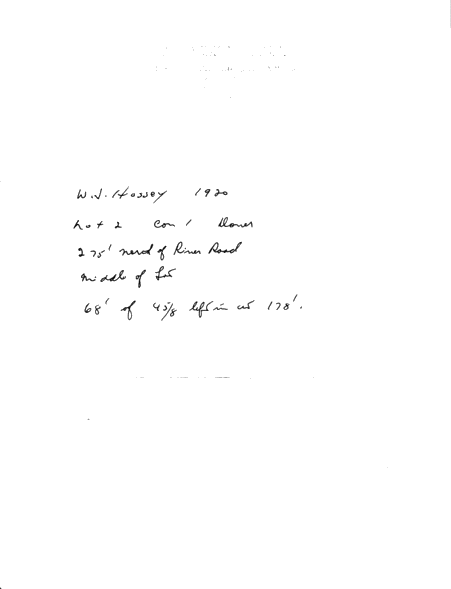 W.J. Hossey 1920
Lot 2 Con 1 Dover
275' nerd of River Road
middle of Lot
68' of 4 5/8 left in at 178'.